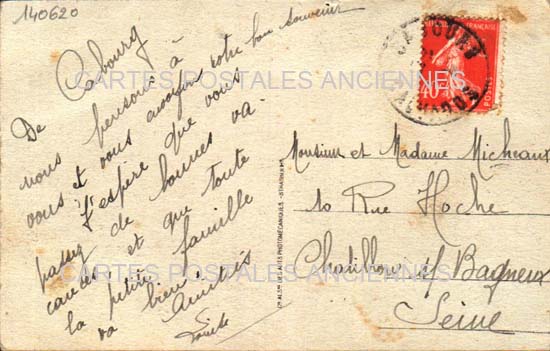 140620
De Cabourg
nous pensons à
vous et vous envoyons notre bon souvenir
J'espère que vous
passez de bonnes va-
cances et que toute
la petite famille
va bien.
Amitiés
CABOURG
CALVADOS
POSTES
40
Monsieur et Madame Micheaux
10 Rue Hoche
Chatillon s/ Bagneux
Seine
CARTES POSTALES ANCIENNES
CARTES POSTALES ANCIENNES